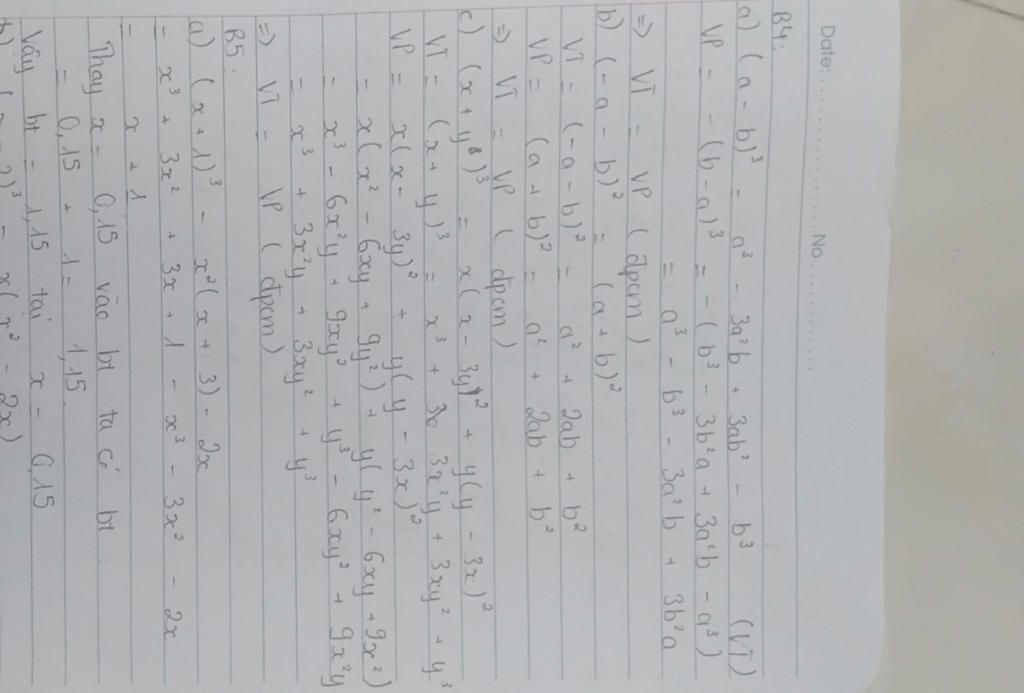 Date: ............... No ...............
B4:
a) (a - b)³ = a³ - 3a²b + 3ab² - b³ (VT)
VP = - (b - a)³ = - (b³ - 3b²a + 3a²b - a³)
= a³ - b³ - 3a²b + 3b²a
=> VT = VP (đpcm)
b) (-a - b)² = (a + b)²
VT = (-a - b)² = a² + 2ab + b²
VP = (a + b)² = a² + 2ab + b²
=> VT = VP (đpcm)
c) (x + y)³ = x(x - 3y)² + y(y - 3x)²
VT = (x + y)³ = x³ + 3x²y + 3xy² + y³
VP = x(x - 3y)² + y(y - 3x)²
= x(x² - 6xy + 9y²) + y(y² - 6xy + 9x²)
= x³ - 6x²y + 9xy² + y³ - 6xy² + 9x²y
= x³ + 3x²y + 3xy² + y³
=> VT = VP (đpcm)
B5:
a) (x + 1)³ - x²(x + 3) - 2x
= x³ + 3x² + 3x + 1 - x³ - 3x² - 2x
= x + 1
Thay x = 0,15 vào bt ta có bt:
= 0,15 + 1 = 1,15
Vậy bt = 1,15 tại x = 0,15
b) (x - 2)³ - x(x² - 2x)